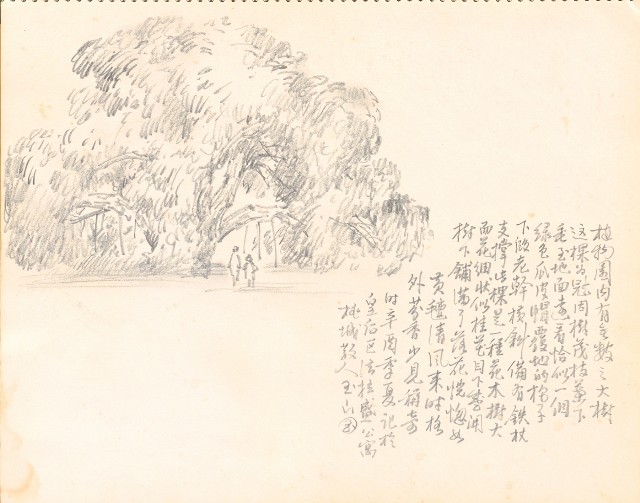 植物園內有無數之大樹
這棵為冠周樹茂枝葉下
垂至地面遠看恰似一個
綠色瓜皮帽覆地的樣子
下臨老幹橫斜備有鉄杖
支撐此棵是一種花木樹大
而花細狀似桂花目下李開
樹下鋪滿了落花恍惚如
黃氈清風來時格
外芬香少見稱奇
時辛酉季夏記於
皇后巴法拉盛公寓
桃城散人玉山